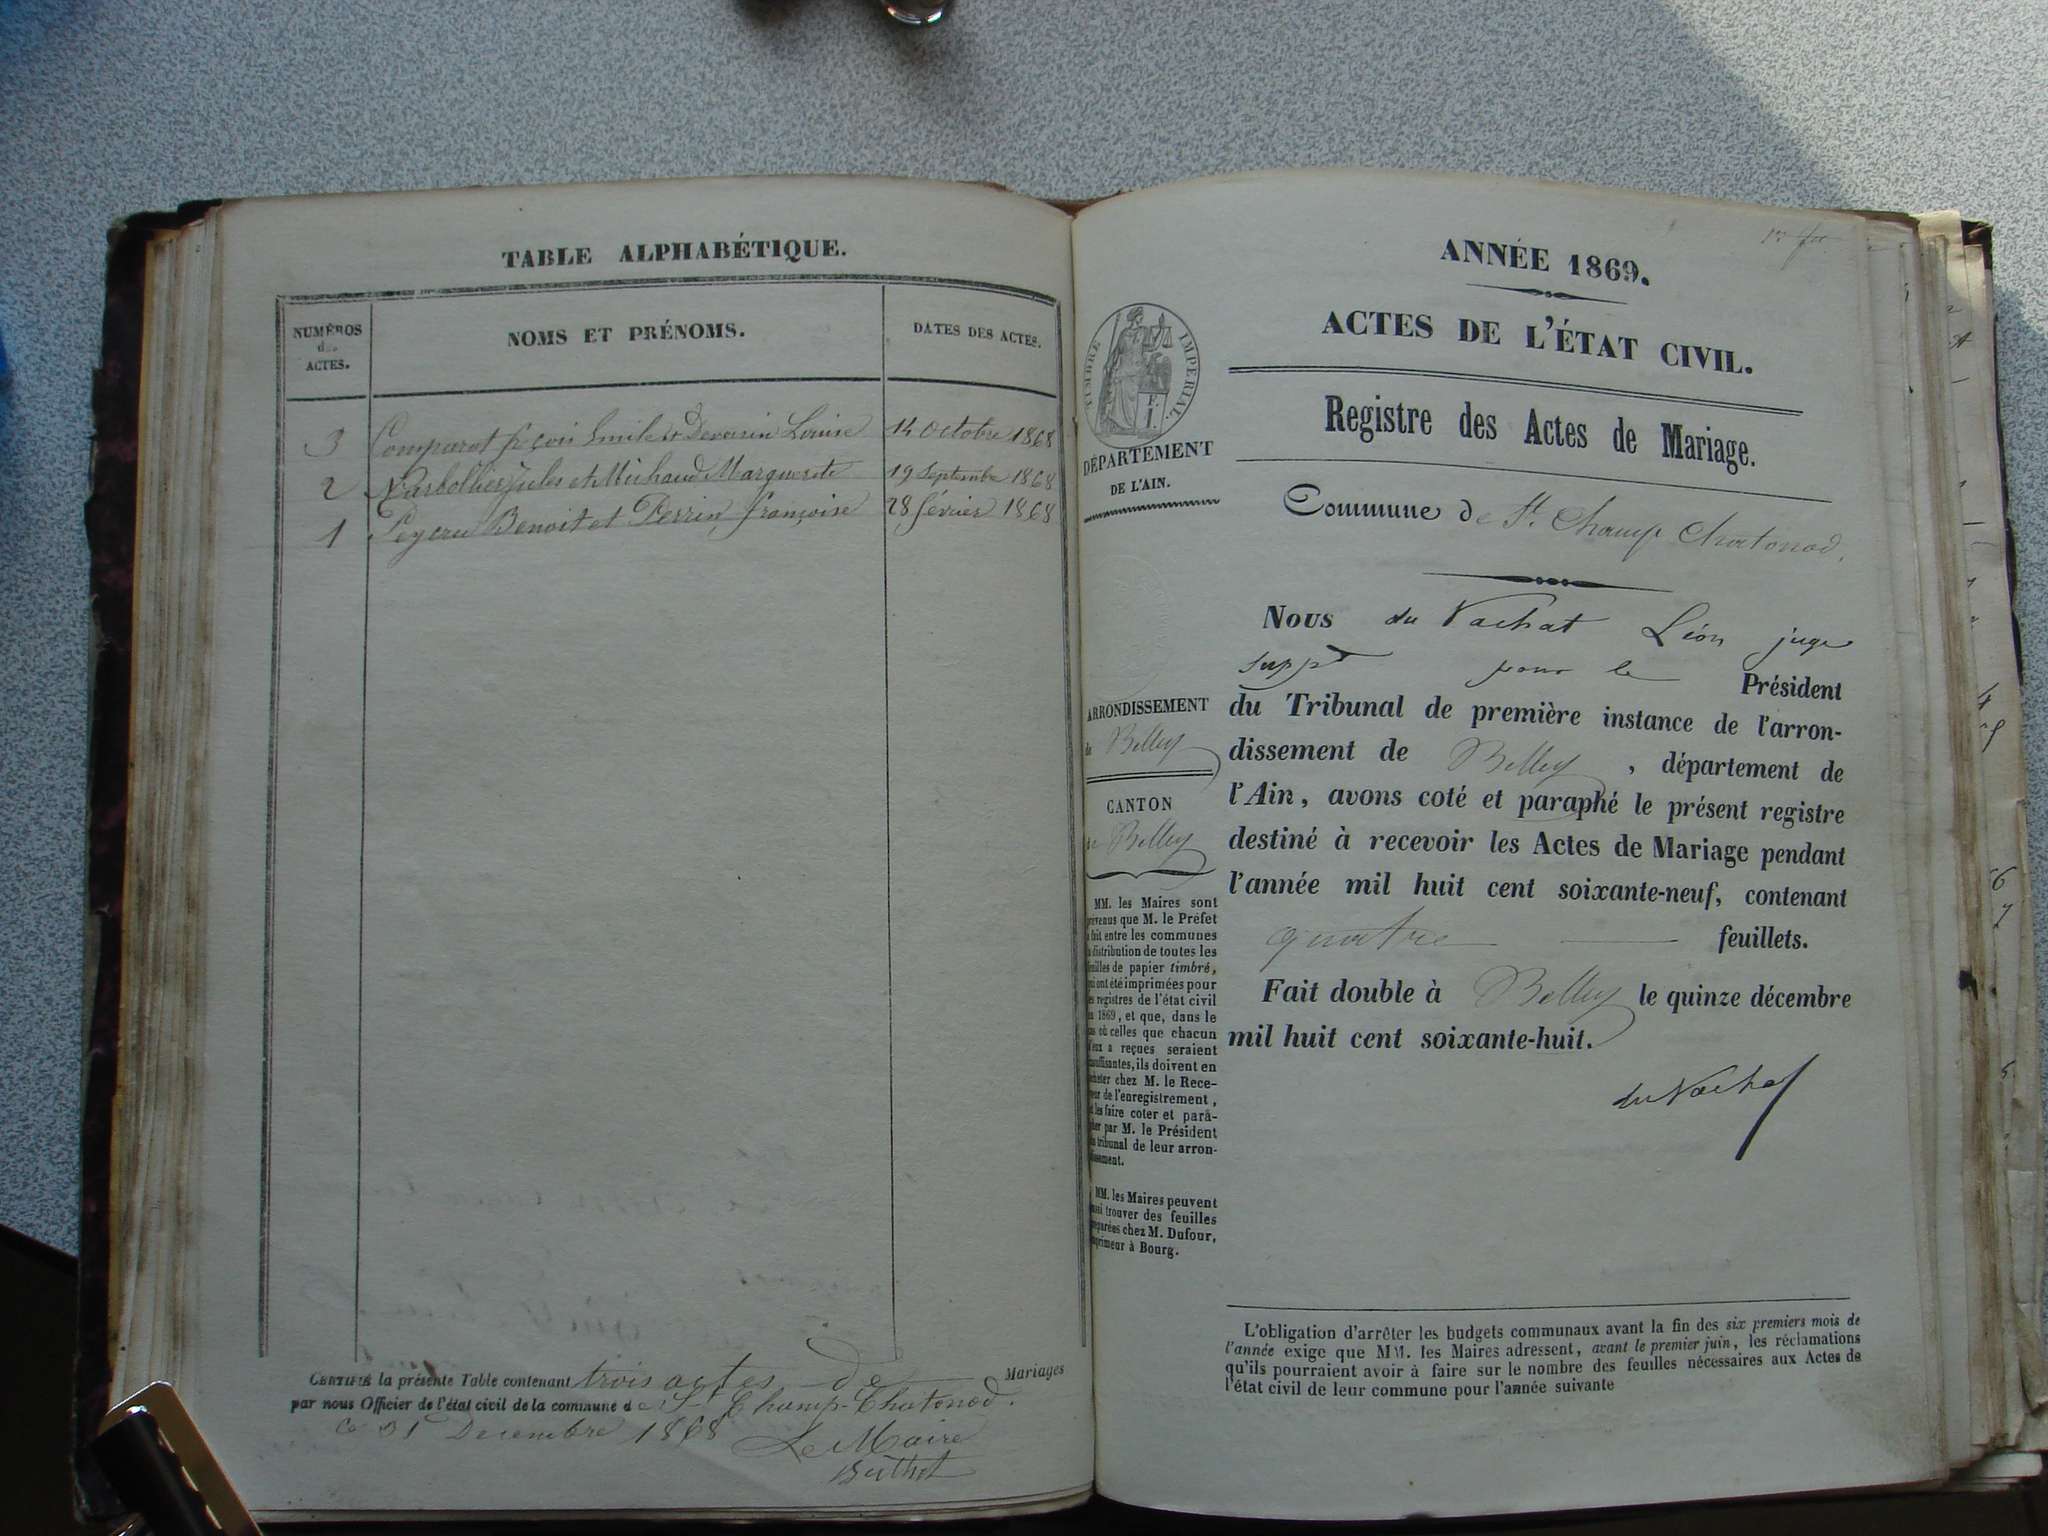 TABLE ALPHABÉTIQUE.
NUMÉROS des ACTES.
NOMS ET PRÉNOMS.
DATES DES ACTES.
3 Comparat fçois Emile et Devoisin Louise 14 Octobre 1868
2 Narbollier Jules et Michaud Marguerite 19 Septembre 1868
1 Peycru Benoit et Perrin françoise 28 février 1868
CERTIFIÉ la présente Table contenant trois actes de Mariages
par nous Officier de l'état civil de la commune de St Champ-Chatonod.
Ce 31 Decembre 1868 Le Maire
Buthet
1er
ANNÉE 1869.
ACTES DE L'ÉTAT CIVIL.
Registre des Actes de Mariage.
Commune de St. Champ Chatonod.
TIMBRE IMPÉRIAL.
DÉPARTEMENT
DE L'AIN.
ARRONDISSEMENT
de Belley
CANTON
de Belley
MM. les Maires sont
prévenus que M. le Préfet
a fait entre les communes
la distribution de toutes les
feuilles de papier timbré,
qui ont été imprimées pour
les registres de l'état civil
en 1869, et que, dans le
cas où celles que chacun
d'eux a reçues seraient
insuffisantes, ils doivent en
acheter chez M. le Rece-
veur de l'enregistrement,
et les faire coter et parâ-
pher par M. le Président
du tribunal de leur arron-
dissement.
MM. les Maires peuvent
aussi trouver des feuilles
préparées chez M. Dufour,
imprimeur à Bourg.
NOUS du Vachat Léon juge
suppt pour le Président
du Tribunal de première instance de l'arron-
dissement de Belley, département de
l'Ain, avons coté et paraphé le présent registre
destiné à recevoir les Actes de Mariage pendant
l'année mil huit cent soixante-neuf, contenant
quatre feuillets.
Fait double à Belley le quinze décembre
mil huit cent soixante-huit.
du Vachat
L'obligation d'arrêter les budgets communaux avant la fin des six premiers mois de
l'année exige que MM. les Maires adressent, avant le premier juin, les réclamations
qu'ils pourraient avoir à faire sur le nombre des feuilles nécessaires aux Actes de
l'état civil de leur commune pour l'année suivante